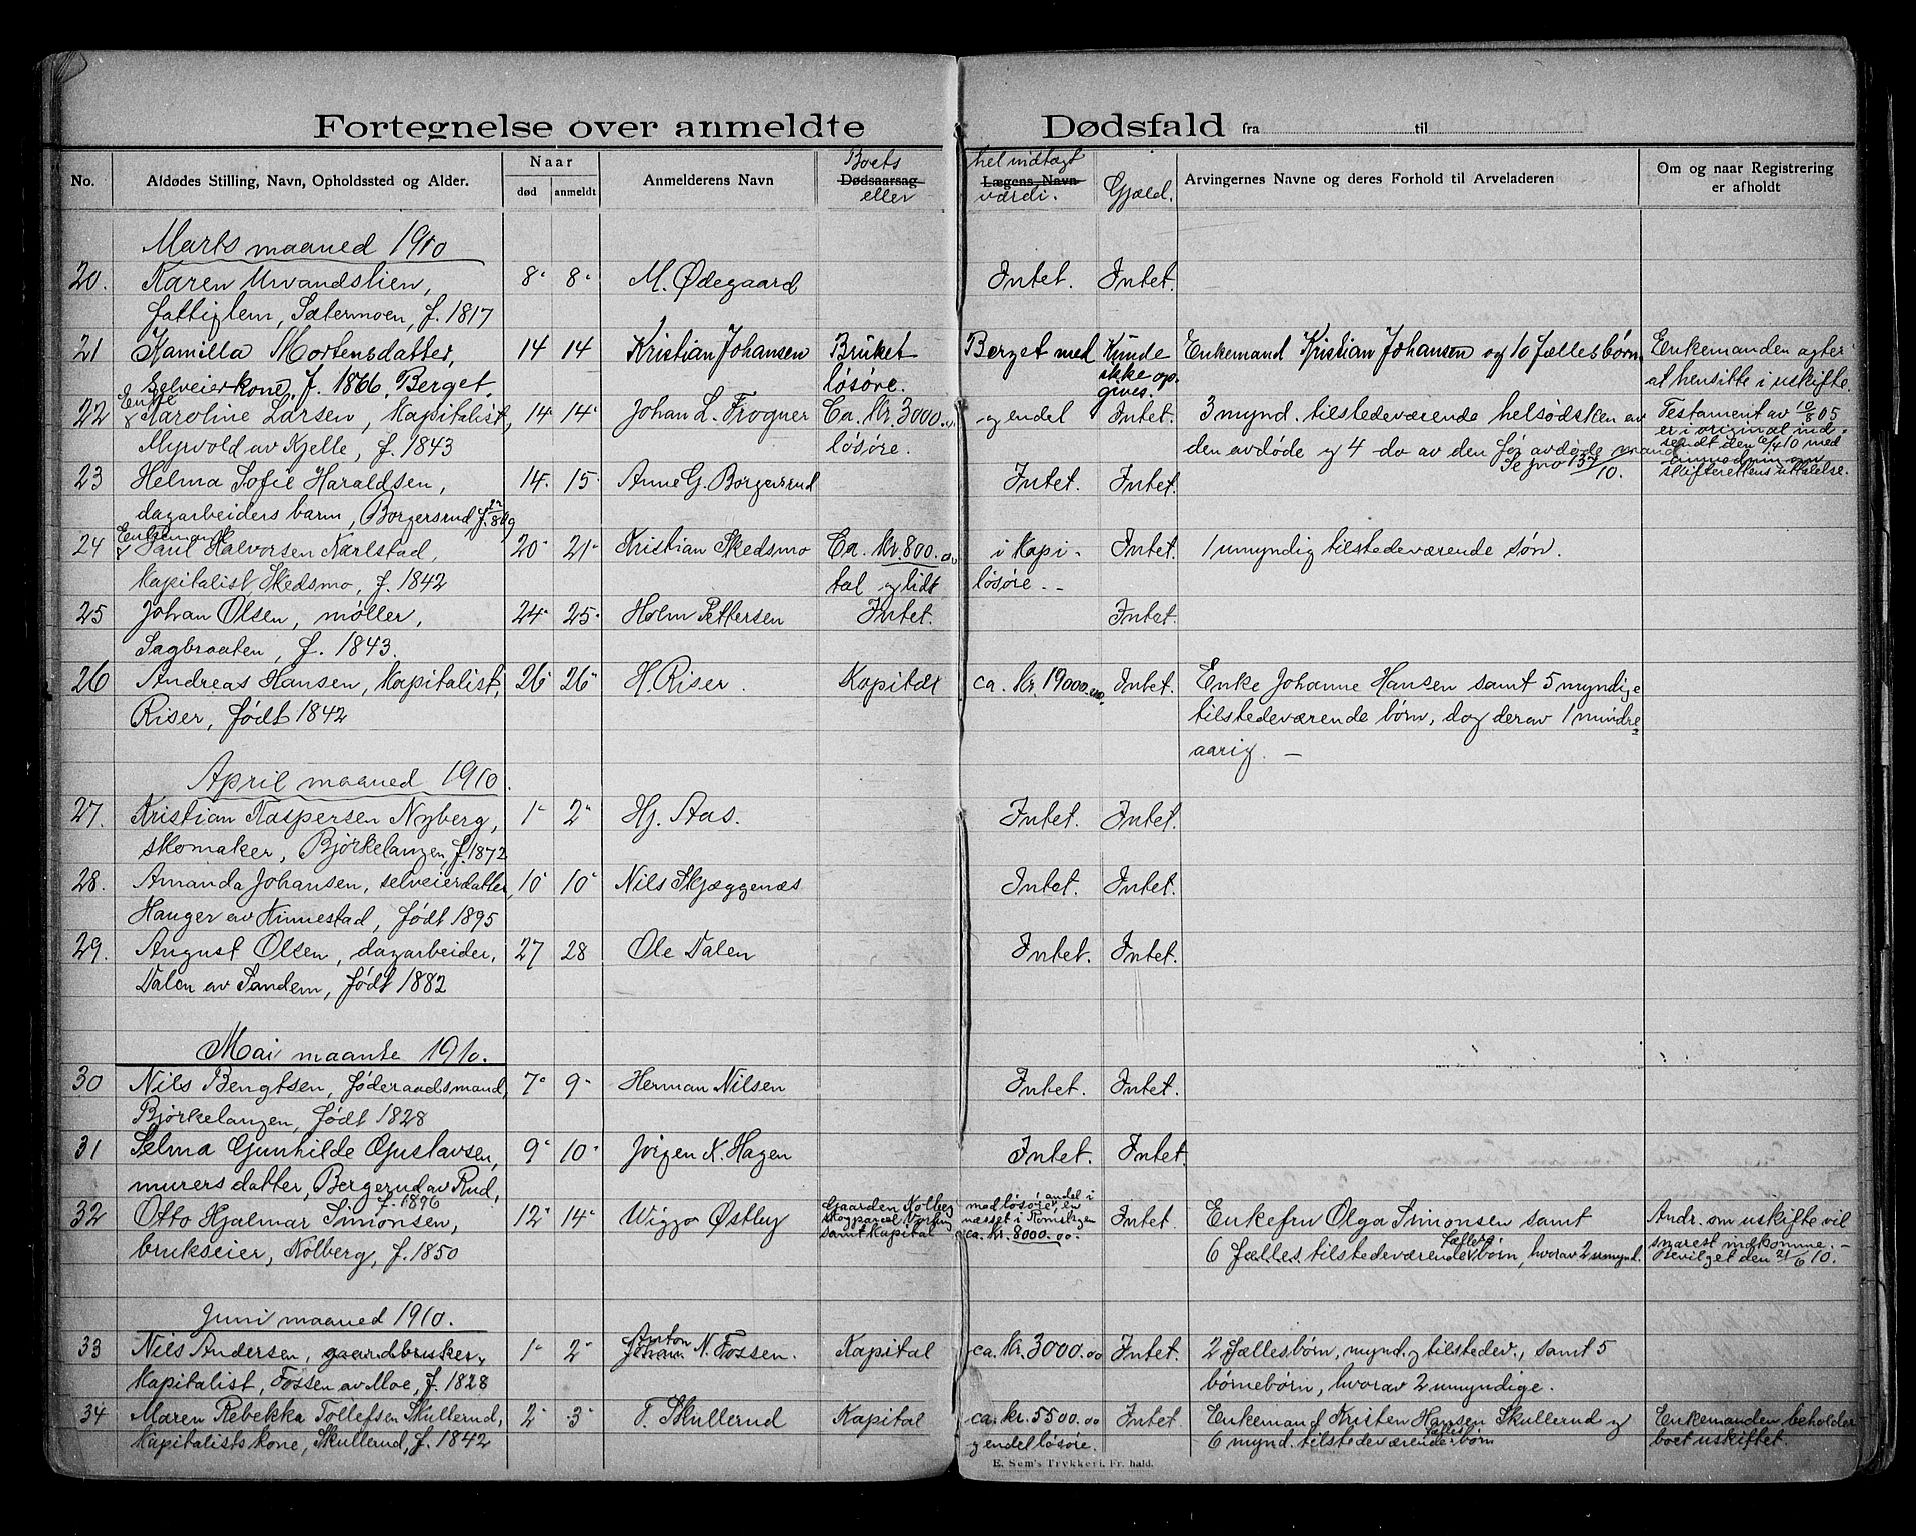 Fortegnelse over anmeldte Dødsfald fra til
No. Afdødes Stilling, Navn, Opholdssted og Alder. Naar død anmeldt Anmelderens Navn Boets Dødsaarsag eller hel indtægt Lægens Navn værdi. Gjæld. Arvingernes Navne og deres Forhold til Arveladeren Om og naar Registrering er afholdt
Marts maaned 1910
20. Karen Urvandslien, 8- 8- M. Ødegaard Intet. Intet.
fattiglem, Sætermoen, f. 1817
21 Kamilla Mortensdatter, 14 14 Kristian Johansen Bruket Berget med Kunde Enkemand Kristian Johansen og 10 fællesbørn. Enkemanden agter
selveierkone, f. 1866, Berget. løsøre. ikke op- gives. at hensitte i uskifte.
22 Enke & Karoline Larsen, Kapitalist, 14- 14- Johan L. Frogner Ca. kr. 3000.00 og endel Intet. 3 mynd. tilstedeværende helsødsken av Testament av 10/8 05
Myrvold av Kjelle, f. 1843 løsøre. den avdøde og 4 do av den før avdøde mand er i original ind-
sendt den 6/4 10 med
Se gno 137/10. anmodning om
skifterettens uttalelse.
23 Helma Sofie Haraldsen, 14. 15- Anne G. Borgersrud Intet. Intet.
dagarbeiders barn, Borgersrud f. 27/8 09
24 Enkemand & Paul Halvorsen Karlstad, 20- 21- Kristian Skedsmo Ca. kr 800.00 i kapi- Intet. 1 umyndig tilstedeværende søn.
Kapitalist, Skedsmo, f. 1842 tal og lidt løsøre. -
25 Johan Olsen, møller, 24- 25- Holm Pettersen Intet. Intet.
Sagbraaten, f. 1843.
26 Andreas Hansen, Kapitalist, 26- 26- H. Riser. Kapital ca. kr 19000.00. Intet. Enke Johanne Hansen samt 5 myndige
Riser, født 1842 tilstedeværende børn, dog derav 1 mindre-
aarig. -
April maaned 1910.
27. Kristian Kaspersen Nyberg, 1- 2- Hj. Aas. Intet. Intet.
skomaker, Bjørkelangen, f. 1872
28. Amanda Johansen, selveierdatter, 10- 10- Nils Skjæggenæs Intet. Intet.
Hanger av Kinnestad, født 1895
29. August Olsen, dagarbeider, 27 28 Ole Dalen Intet. Intet.
Dalen av Sandem, født 1882
Mai maante 1910.
30 Nils Bengtsen, føderaadsmand, 7- 9- Herman Nilsen Intet. Intet.
Bjørkelangen, født 1828
31 Selma Gunhilde Gustavsen, 9- 10- Jørgen K. Hagen Intet. Intet.
murers datter, Bergerud av Rud,
f. 1896
32 Otto Hjalmar Simonsen, 12- 14- Wiggo Østby Gaarden Kolberg med løsøre, andel i en Intet. Enkefru Olga Simonsen samt Andr. om uskifte vil
brukseier, Kolberg, f. 1850 samt kapital ca. kr. 8000.00. 6 fælles tilstedeværende fælles børn, hvorav 2 umynd. snarest indkomme. -
Bevilget den 21/6 10.
Juni maaned 1910.
33 Nils Andersen, gaardbruker, 1- 2- Anton Johan N. Fossen. Kapital ca. kr. 3000.00 Intet. 2 fællesbørn, mynd. og tilstedev., samt 5
Kapitalist, Fossen av Moe, f. 1828 børnebørn, hvorav 2 umyndige.
34 Maren Rebekka Tollefsen Skullerud, 2- 3- T. Skullerud Kapital ca. kr. 5500.00 Intet. Enkemand Kristen Hansen Skullerud og Enkemanden beholder
Kapitalistskone, Skullerud, f. 1842 og endel løsøre. 6 mynd. tilstedeværende fælles børn boet uskiftet.
E. Sem's Trykkeri. Fr.hald.